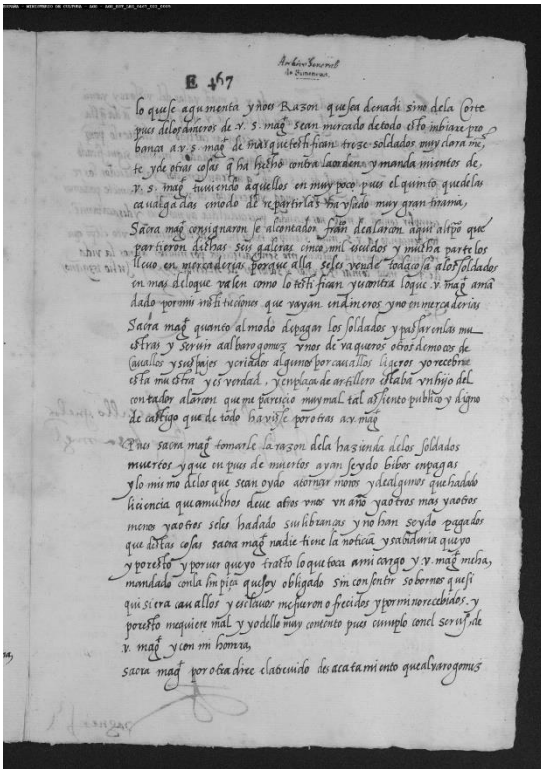 Archivo General
de Simancas
E 467
lo que se aqumenta y no es Razon que sea de nadi sino dela Corte
pues delos dineros de v. s. mag.t sean mercado de todo esto inbiare pro
bança a v. s. mag.t de mas que testifican treze soldados muy clara me,
te y de otras cosas q ha hecho contra la orden, y manda mientos de,
v. s. mag.t tuviendo aquellos en muy poco pues el quinto que delas
cavalgadas e modo de repartirlas ha y lado muy gran trama,
Sacra mag.t consignaron se al contador fran.co de alarcon aqui al tp̃o que
partieron dichas seis galeras cinco mil escudos y mucha parte los
llevo en mercaderias porque alla seles vende toda cosa alos soldados
en mas delo que valen como lo testifican y es contra lo que v. mag.t a mã
dado por mis instituciones que vayan en dineros y no en mercaderias
Sacra mag.t quanto al modo de pagar los soldados y passar en las mu_
estras y servir a albaro gomez unos de vaqueros otros de moços de
Cavallos y sus pajes y criados algunos por cavallos ligeros yo recebire
esta muestra y es verdad, y en plaça de artillero estaba un hijo del
contador alarcon que me parescio muy mal tal assiento publico y digno
de castigo que de todo ha visse por otras a v. mag.t
Pues sacra mag.t tomarle la razon dela hazienda delos soldados
muertos y que en pues de muertos ayan seydo bibos en pagas
y lo mismo delos que sean oydo atornar moros y de algunos que ha dado
liciencia que a muchos deve a tros unos un año y a otros mas y a otros
menos y a otros seles ha dado sus libranças y no han seydo pagados
que destas cosas sacra mag.t nadie tiene la noticia y sabiduria que yo
y por esto y por ver que yo tracto lo que toca a mi cargo y v. mag.t me ha,
mandado con la limpieça que soy obligado sin consentir sobornos que si
quisiera cavallos y esclavos me fueron ofrecidos y por mi no recebidos, y
por esto me quiere mal y yo dello muy contento pues cumplo con el servi.o de
v. mag.t y con mi honrra,
Sacra mag.t por otra dire el atrevido desacatamiento que alvaro gomez